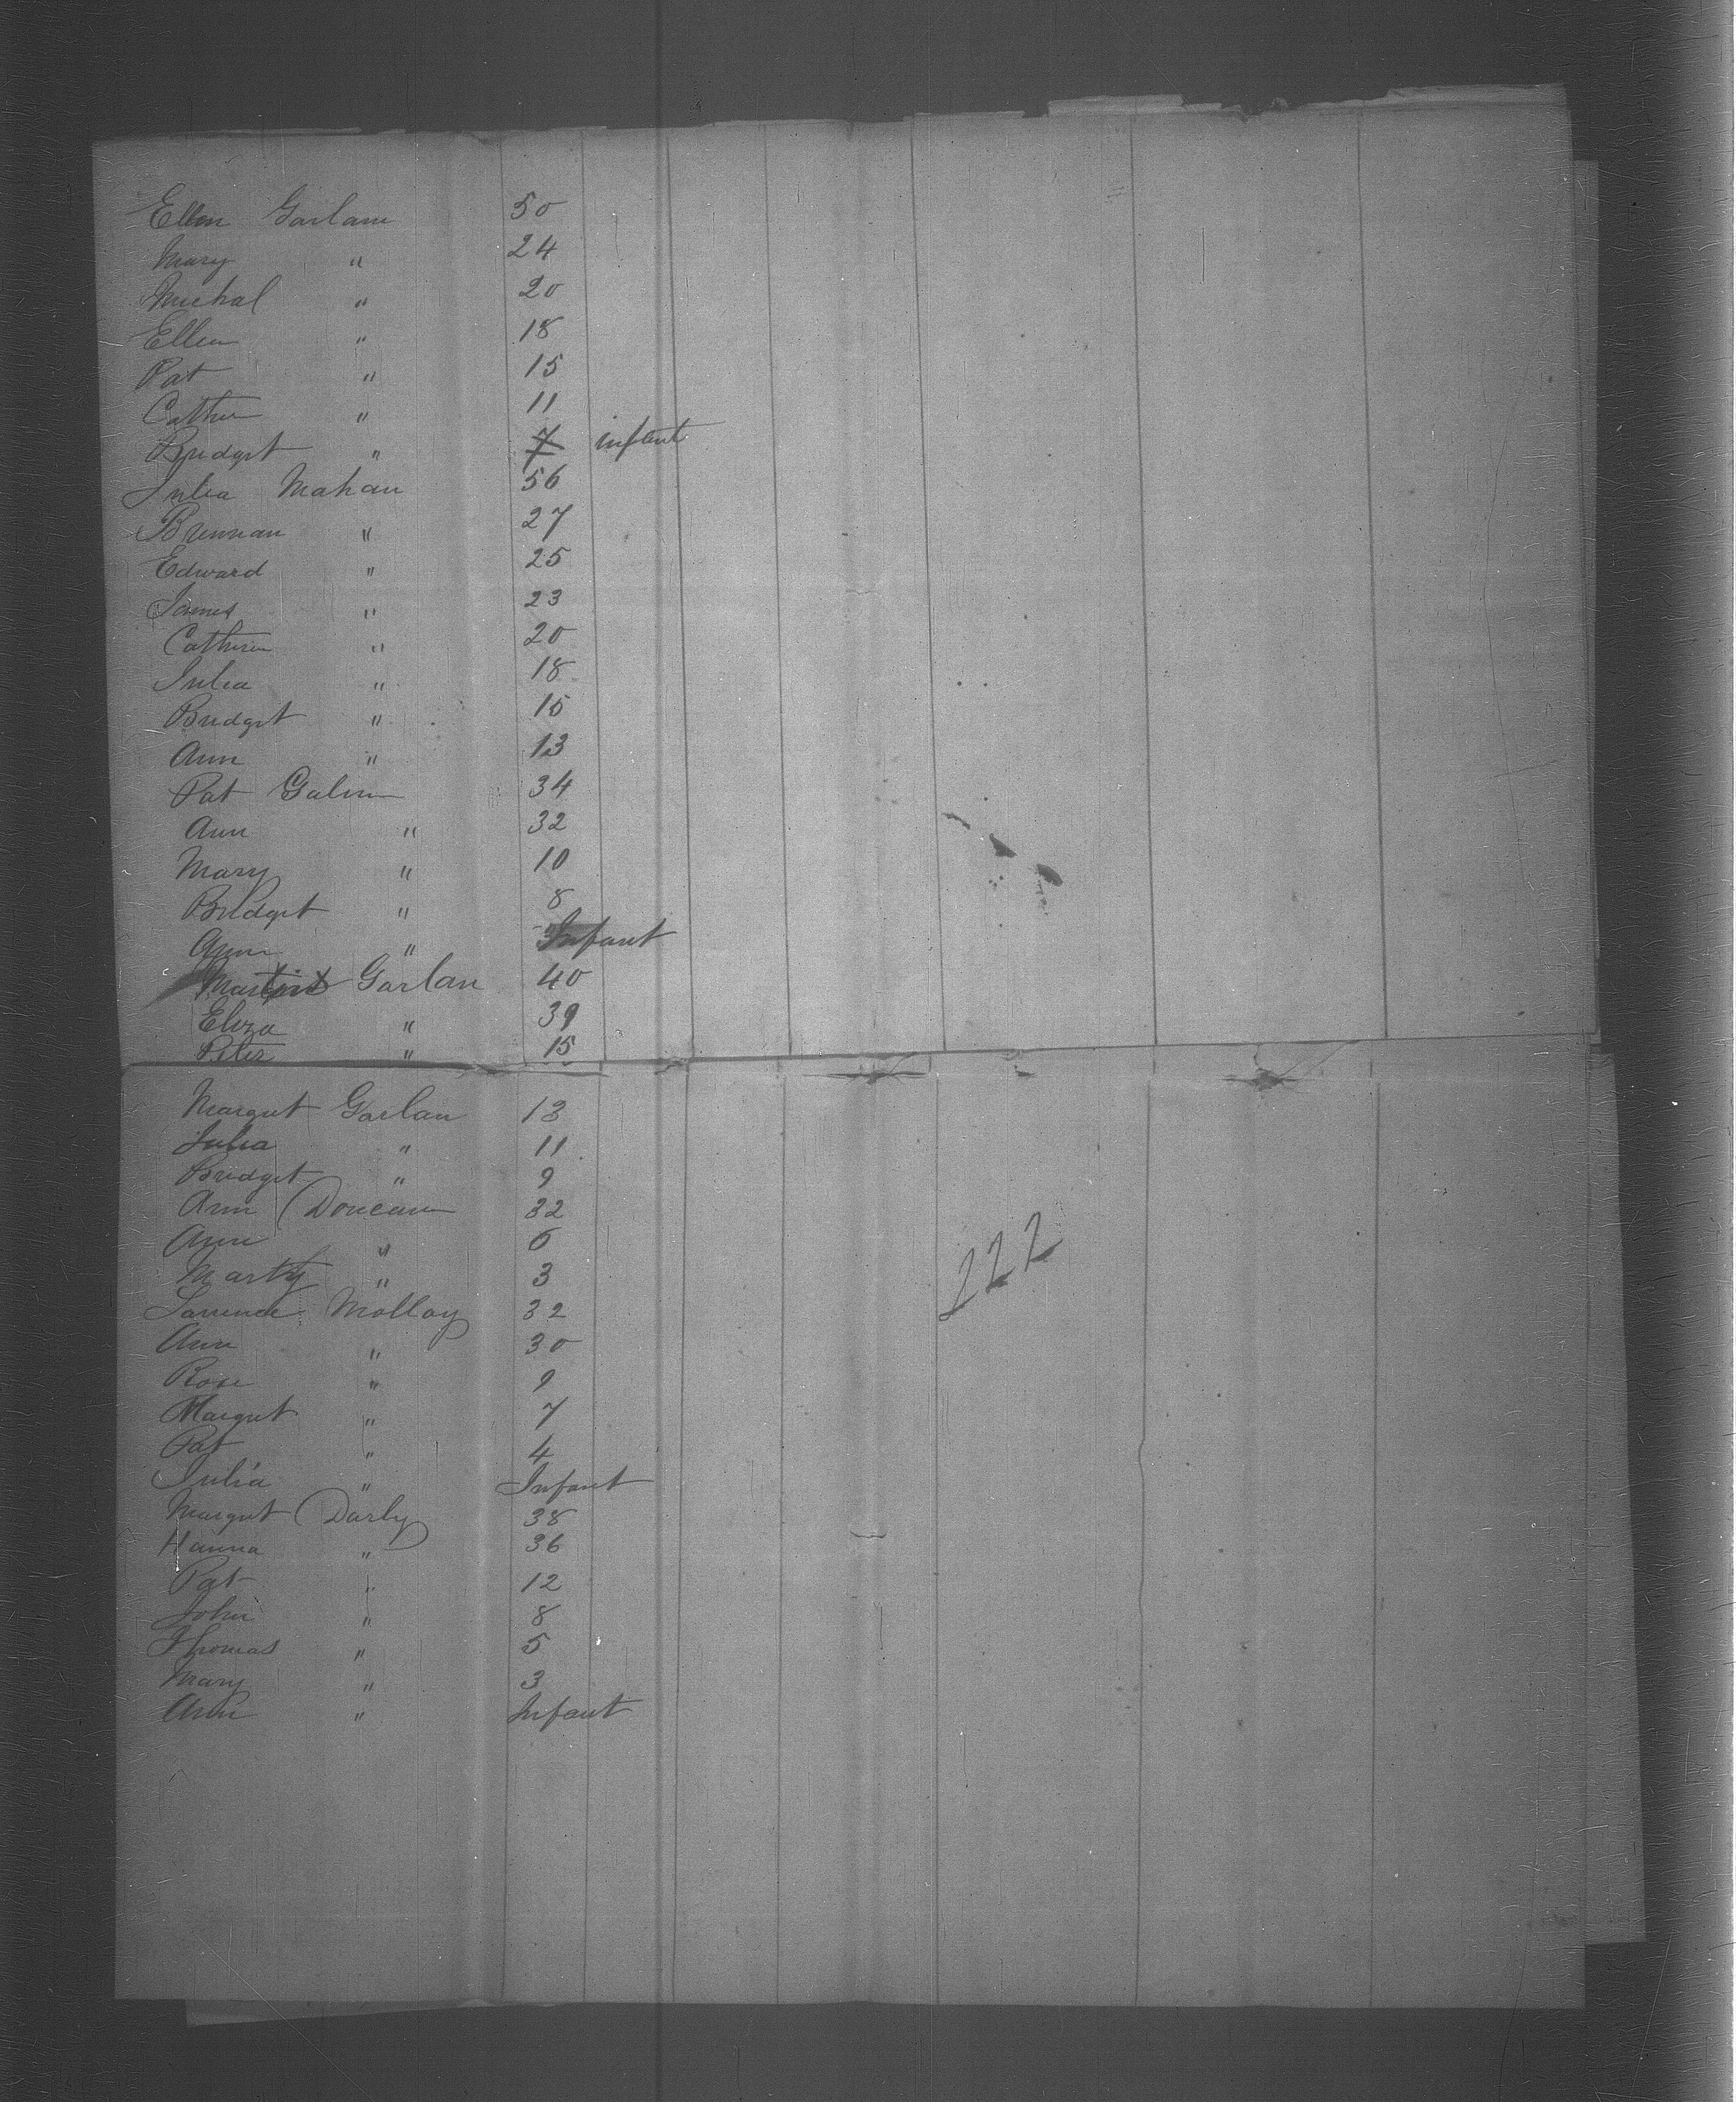 Ellen Garlam 50
Mary " 24
Michal " 20
Ellen " 18
Pat " 15
Cather " 11
Bridget " 7 infant
Julia Mahan 56
Brennan " 27
Edward " 25
James " 23
Catherin " 20
Julia " 18
Bridget " 15
Ann " 13
Pat Galvin 34
Ann " 32
Mary " 10
Bridget " 8
Ann " Infant
Martin Garlan 40
Eliza " 39
Peter " 15
Margret Garlan 13
Julia " 11
Bridget " 9
Ann Doncan 32
Ann " 6
Marty " 3
Larrence Molloy 32
Ann " 30
Rose " 9
Margret " 7
Pat " 4
Julia " Infant
Margret Darly 38
Hanna " 36
Pat " 12
John " 8
Thomas " 5
Mary " 3
Ann " Infant
222